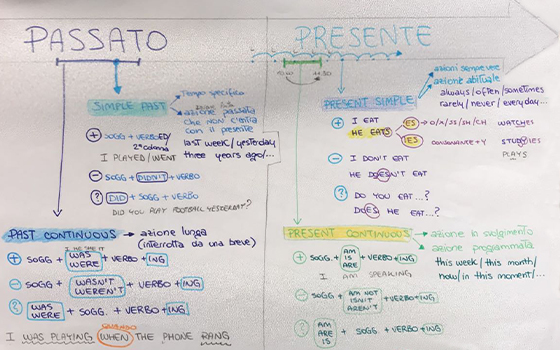 PASSATO
SIMPLE PAST
Tempo specifico
azione passata
che NON c'entra
con il presente
+ SOGG + VERBOED/
2ª colonna
I PLAYED/WENT
last week/yesterday
three years ago/...
- SOGG + DIDN'T + VERBO
? DID + SOGG + VERBO
DID YOU PLAY FOOTBALL YESTERDAY?
PAST CONTINUOUS → azione lunga
(interrotta da una breve)
I HE SHE IT
+ SOGG + WAS WERE + VERBO + ING
- SOGG + WASN'T WEREN'T + VERBO + ING
? WAS WERE + SOGG. + VERBO + ING
QUANDO
I WAS PLAYING WHEN THE PHONE RANG
PRESENTE
PRESENT SIMPLE
azioni sempre vere
azione abituale
always/often/sometimes
rarely/never/everyday...
+ I EAT
HE EATS
ES → O/X/SS/SH/CH WATCHES
IES CONSONANTE+Y STUDYIES
PLAYS
- I DON'T EAT
HE DOESN'T EAT
? DO YOU EAT...?
DOES HE EAT...?
PRESENT CONTINUOUS → azione in svolgimento
azione programmata
this week/this month/
now/in this moment/...
+ SOGG. + AM IS ARE + VERBO + ING
I AM SPEAKING
- SOGG + AM NOT ISN'T AREN'T + VERBO + ING
? AM ARE IS + SOGG. + VERBO + ING